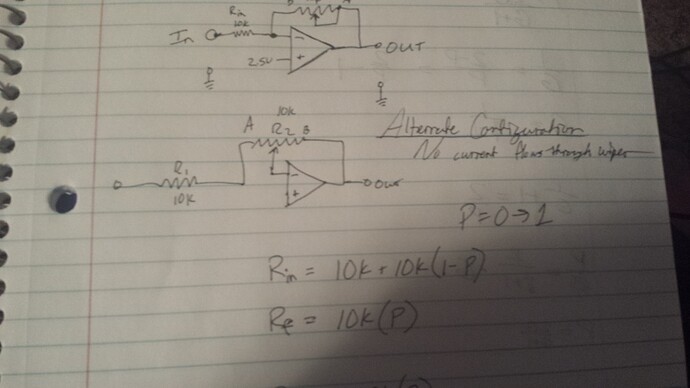 Rin
10k
In
OUT
2.5V
- +
10k
A R2 B
Alternate Configuration
No current flows through wiper
R1
10K
- +
OUT
P=0→1
Rin = 10k + 10k(1-P)
Rf = 10k(P)